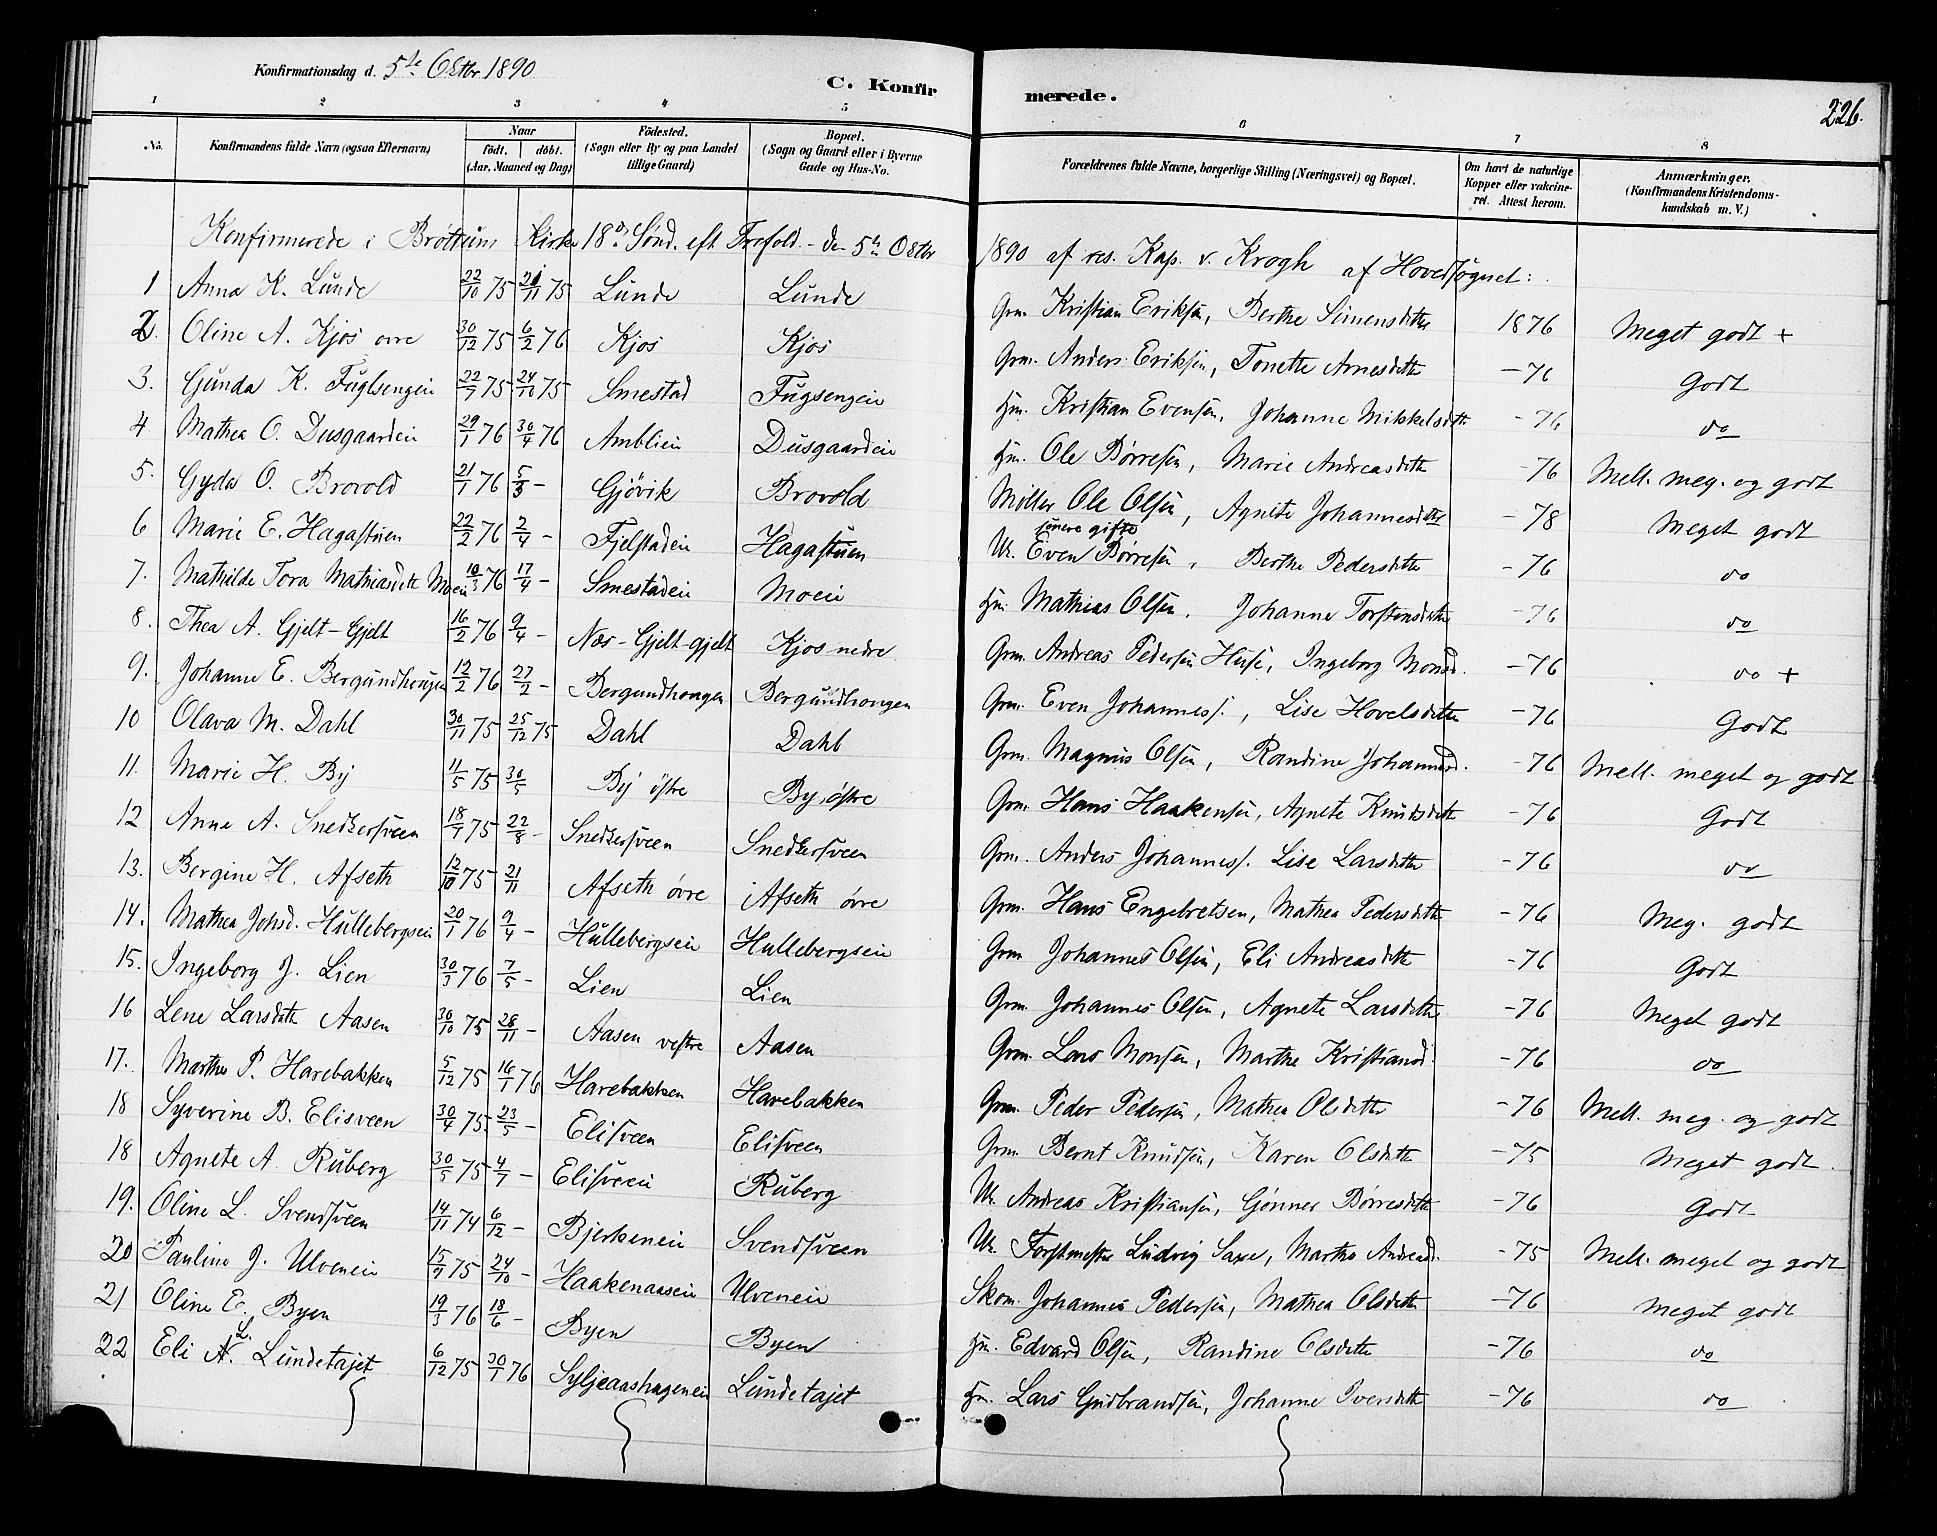 Konfirmationsdag d. 5te Oktbr 1890
C. Konfirmerede.
226.
1 2 3 4 5 6 7 8
No. | Konfirmandens fulde Navn (ogsaa Efternavn) | Naar födt. döbt. (Aar, Maaned og Dag) | Födested. (Sogn eller By og paa Landet tillige Gaard) | Bopæl. (Sogn og Gaard eller i Byerne Gade og Hus-No. | Forældrenes fulde Navne, borgerlige Stilling (Næringsvei) og Bopæl. | Om havt de naturlige Kopper eller vakcineret. Attest herom. | Anmærkninger. (Konfirmandens Kristendomskundskab m. V.)
Konfirmerede i Brøttum Kirke 18de Sønd. eft. Trefold. - den 5te Oktbr 1890 af res. Kap. v. Krogh af Hovedsognet:
1 Anna K. Lunde 22/10 75 21/11 75 Lunde Lunde Grm. Kristian Eriksen, Berthe Simensdatter 1876 Meget godt +
2. Oline A. Kjos øvre 30/12 75 6/2 76 Kjos Kjos Grm. Anders Eriksen, Tonette Arnesdatter - 76 Godt
3. Gunda K. Fuglsengen 22/7 75 24/10 75 Smestad Fugsengen Hm. Kristian Evensen, Johanne Mikkelsdtr - 76 do
4 Mathea O. Dusgaardeie 29/1 76 30/4 76 Amblien Dusgaardeie Hm. Ole Børresen, Marie Andreasdatter - 76 Mell. meg. og godt
5. Gyda O. Brovold 21/1 76 5/3 - Gjövik Brovold Møller Ole Olsen, Agnete Johannesdatter - 78 Meget godt
6 Marie E. Hagastuen 22/2 76 2/4 - Fjelstadeie Hagastuen U. Even Børresen, senere gifte Berthe Pedersdatter - 76 do
7. Mathilde Tora Mathiasdtr Moeie 10/3 76 17/4 - Smestadeie Moeie Hm. Mathias Olsen, Johanne Torstensdatter - 76 do
8. Thea A. Gjelt-Gjelt 16/2 76 9/4 - Næs-Gjelt-gjelt Kjos nedre Grm. Andreas Pedersen Huse, Ingeborg Monsd. - 76 do +
9. Johanne E. Bergundhougen 12/2 76 27/2 - Bergundhougen Bergundhougen Grm. Even Johanness., Lise Hovelsdatter - 76 Godt
10 Olava M. Dahl 30/11 75 25/12 75 Dahl Dahl Grm. Magnus Olsen, Randine Johannesd. - 76 Mell. meget og godt
11. Marie H. By 11/5 75 30/5 By østre By østre Grm. Hans Haakensen, Agnete Knudsdatter - 76 Godt
12 Anne A. Snedkersveen 18/7 75 22/8 - Snedkersveen Snedkersveen Grm. Anders Johanness. Lise Larsdatter - 76 do
13. Bergine H. Afseth 12/10 75 21/11 Afseth øvre Afseth øvre Grm. Hans Engebretsen, Mathea Pedersdatter - 76 Meg. godt
14. Mathea Johsd. Hullebergseie 20/1 76 9/4 - Hullebergseie Hullebergseie Grm Johannes Olsen, Eli Andreasdatter - 76 Godt
15. Ingeborg J. Lien 30/3 76 7/5 - Lien Lien Grm. Johannes Olsen, Agnete Larsdatter - 76 Meget godt
16 Lene Larsdatter Aasen 30/10 75 28/11 - Aasen vestre Aasen Grm. Lars Monsen, Marthe Kristiansd. - 76 do
17. Marthe P. Harebakken 5/12 75 16/1 76 Harebakken Harebakken Grm. Peder Pedersen, Mathea Olsdatter - 76 Mell. meg. og godt
18 Syverine B. Elisveen 30/4 75. 23/5 - Elisveen Elisveen Grm. Bernt Knudsen, Karen Olsdatter - 75 Meget godt.
18 Agnete A. Ruberg 30/5 75 4/7 - Elisveeie Ruberg U. Andreas Kristiansen, Gønner Børresdatter - 76 Godt
19. Oline L. Svendsveen 14/11 74 6/12 - Bjerkeneie Svendsveen U. Forstmester Ludvig Saxe, Marthe Andreasd. - 75 Mell. meget og godt
20 Pauline J. Ulveneie 15/9 75 24/10 - Haakenaaseie Ulveneie Skom. Johannes Pedersen, Mathea Olsdatter - 76 Meget godt
21 Oline E. Byen 19/3 76 18/6 - Byen Byen Hm. Edvard Olsen, Randine Olsdatter - 76 do
22 Eli L. Lundetajet 6/12 75 30/1 76 Syljeaashageneie Lundetajet Hm. Lars Gudbrandsen, Johanne Iversdatter - 76 do